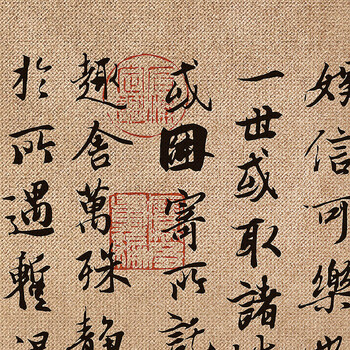 娱信可樂也
一世或取諸
或因寄所託
趣舍萬殊靜
於所遇暫得